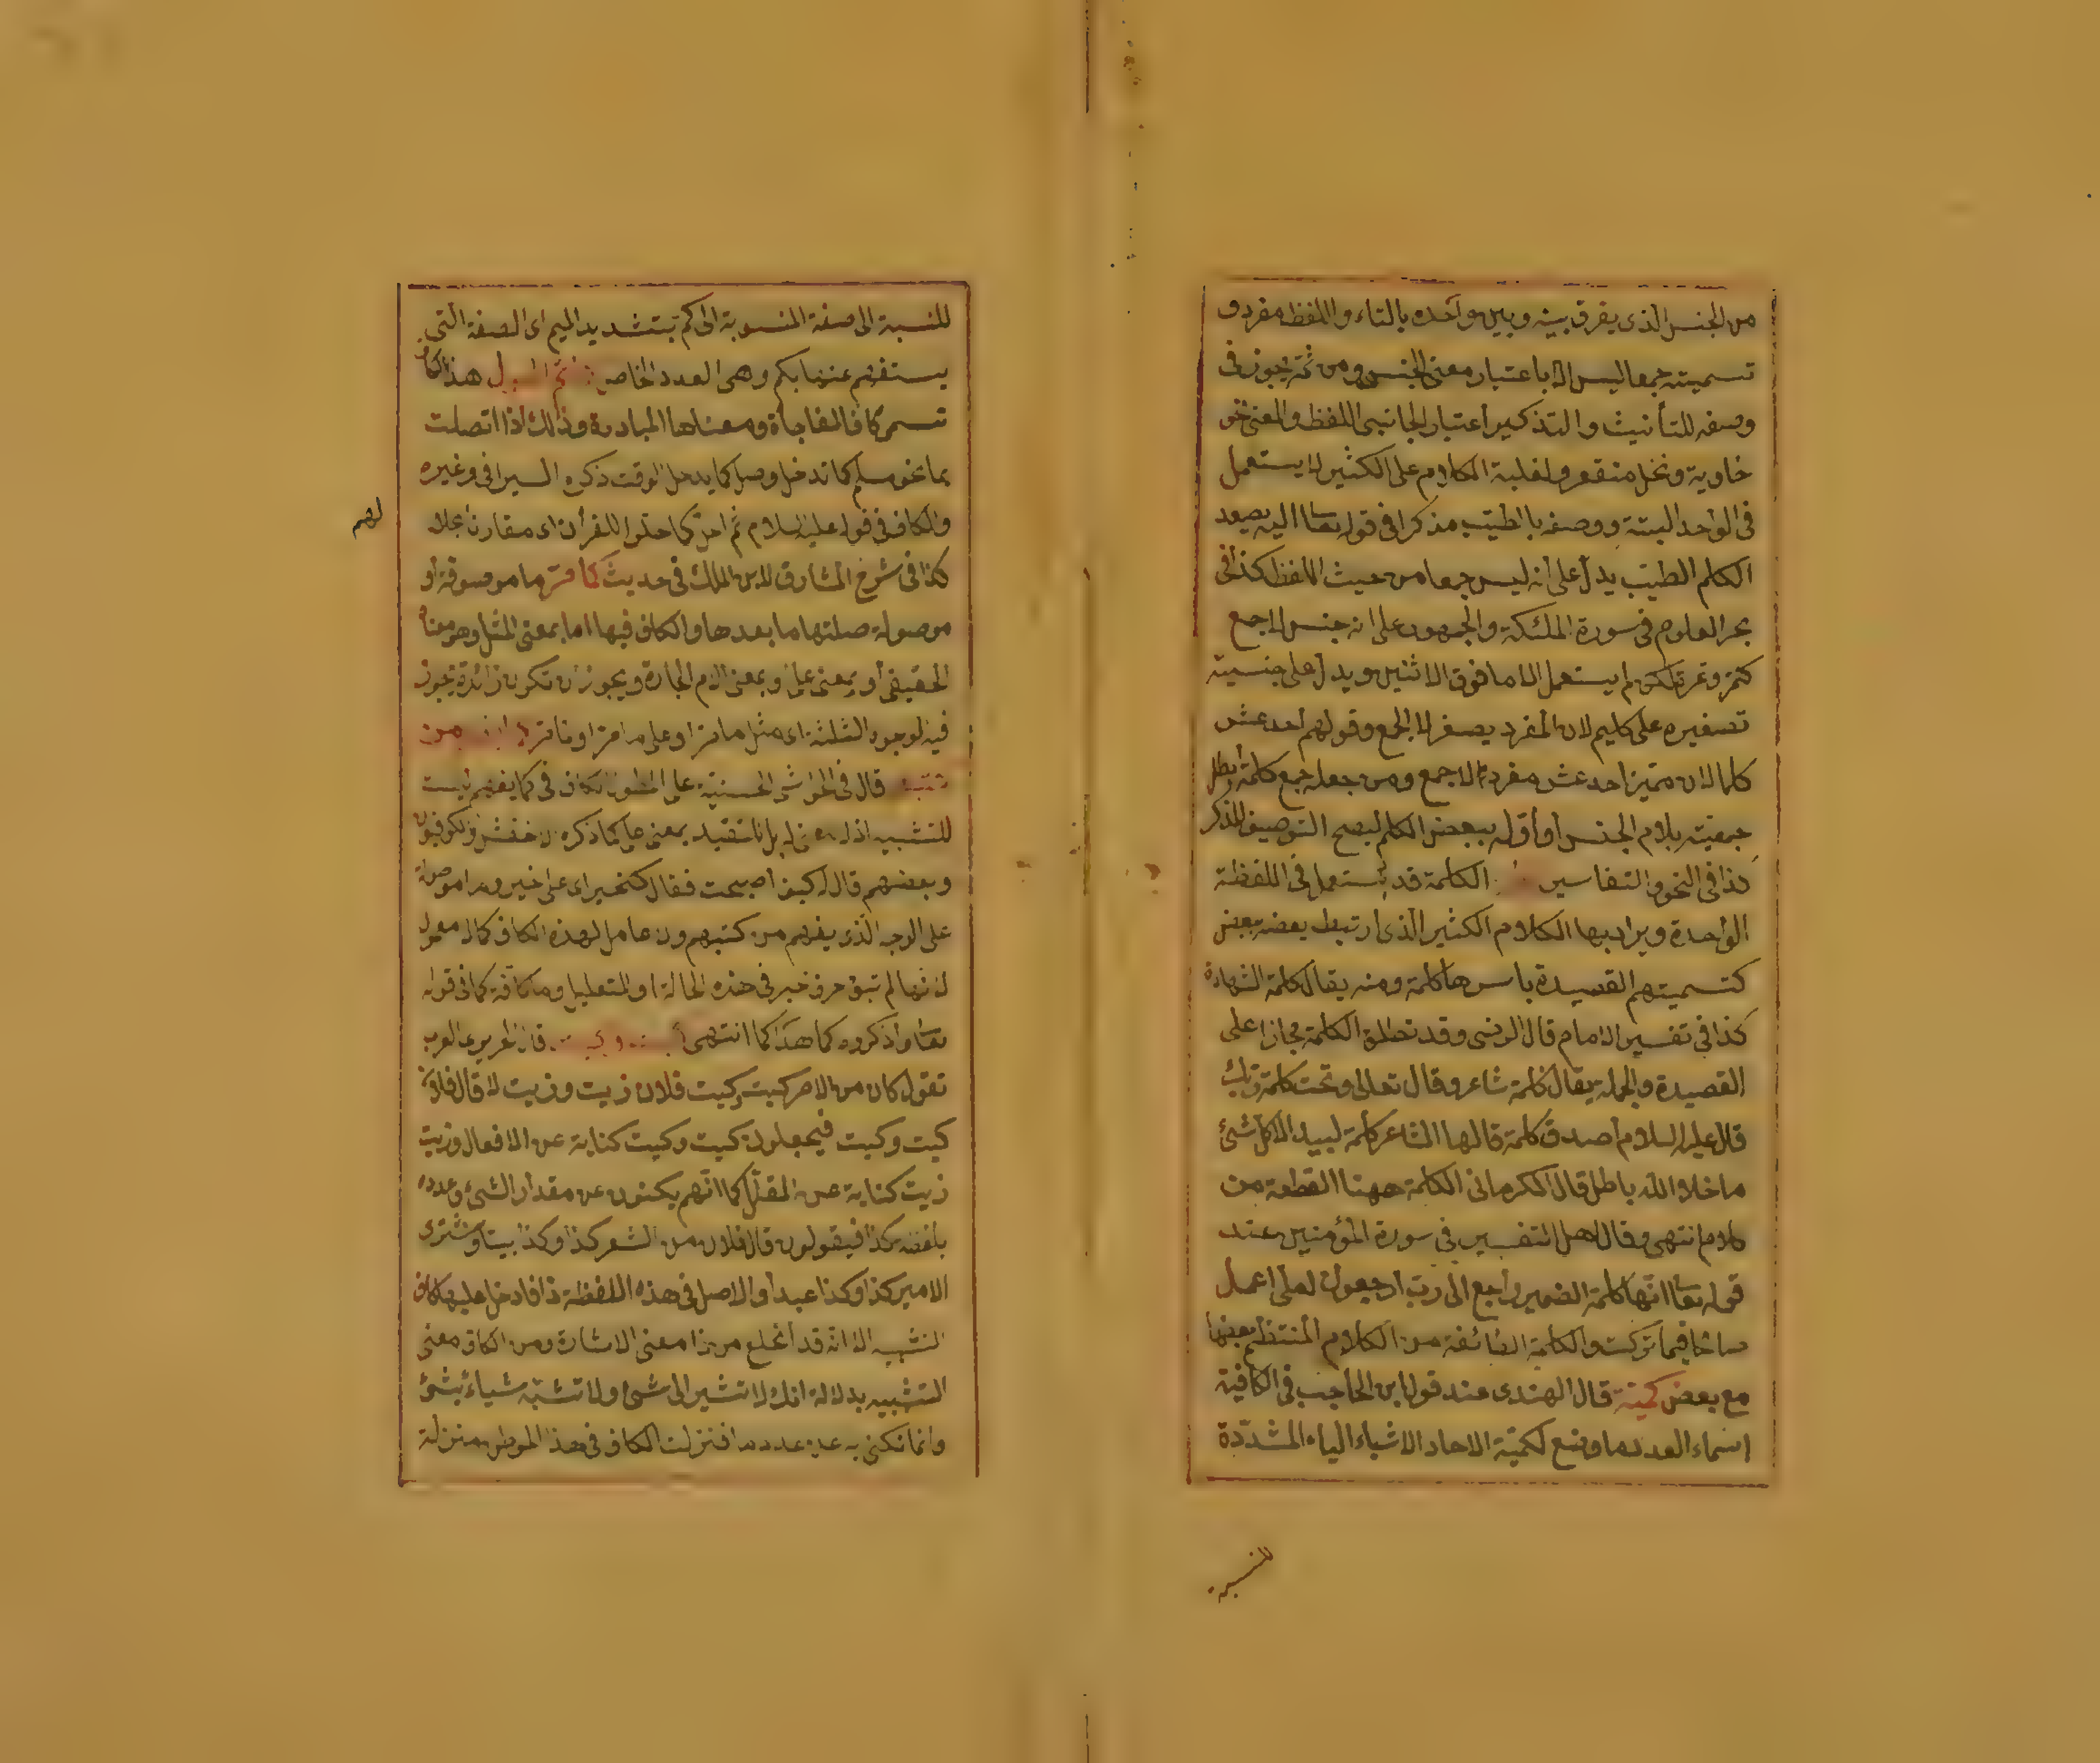 من الجنس الذى يفرق بينه وبين واحده بالتاء واللفظ مفرد و
تسميته جمعا ليس الا باعتبار معنى الجنس ومن ثمة يجوز فى
وصفه للتأنيث والتذكير اعتبار الجانبى اللفظ والمعنى نحو
خاوية ونخل منقعر ولغلبة الكلام على الكثير لا يستعمل
فى الواحد البتة ووصفه بالطيب مذكرا فى قوله تعا اليه يصعد
الكلم الطيب يدل على أنه ليس جمعا من حيث اللفظ كذا فى
بحر العلوم فى سورة الملئكة والجمهور على انه جنس لا جمع
كتمر وتمرة لكن لم يستعمل الا ما فوق الاثنين ويدل على جنسيته
تصغيره على كليم لان المفرد يصغر لا الجمع وقولهم احد عشر
كلما لان مميز احد عشر مفرد لا جمع ومن جعله جمع كلمة أبطل
جمعيته بلام الجنس أو أوله ببعض الكلم ليصح التوصيف للمذكر
كذا فى النحو والتفاسير الكلمة قد يستعمل فى اللفظة
الواحدة ويراد بها الكلام الكثير الذى ارتبط بعضه ببعض
كتسميتهم القصيدة بأسرها كلمة ومنه يقال كلمة الشهادة
كذا فى تفسير الامام قال الرضى وقد تطلق الكلمة مجازا على
القصيدة والجملة يقال كلمة شاعر وقال تعالى وتمت كلمة ربك
قال عليه السلام أصدق كلمة قالها الشاعر كلمة لبيد الا كل شئ
ما خلا الله باطل قال الكرمانى الكلمة ههنا القطعة من
كلام انتهى وقال اهل التفسير فى سورة المؤمنين عند
قوله تعا انها كلمة الضمير راجع الى رب ارجعون لعلى اعمل
صالحا فيما تركت والكلمة الطائفة من الكلام المنتظم بعضها
مع بعض كمية قال الهندى عند قول ابن الحاجب فى الكافية
اسماء العدد ما وضع لكمية الاحاد الاشياء الياء المشددة
للنسبة
للنسبة الى صفة المنسوبة الى كم بتشديد الميم اى الصفة التى
يستفهم عنها بكم وهى العدد الخاص هذا كاف
تسمى كاف المفاجأة ومعناها المبادرة وذلك اذا اتصلت
بما نحو سلم كما تدخل وصل كما يدخل الوقت ذكره السيرافى وغيره
والكاف فى قوله عليه السلام ثم اى مقارنا
كذا فى شرح المشارق لابن الملك فى حديث كما مر ما موصوفة أو
موصولة صلتها ما بعدها والكاف فيها اما بمعنى المثل وهو معناه
الحقيقى أو بمعنى على أو بمعنى اللام الجارة ويجوز ان تكون زائدة يجوز
فيه الوجوه الثلثة اى مثل ما مر او على ما مر او ما مر
قال فى الحواشى الحسنية على المطول الكاف فى كما يفهم ليست
للتشبيه بمعنى على كما ذكره الاخفش والكوفيون
وبعضهم قال له كيف أصبحت فقال كخير اى على خير وما موصولة
على الوجه الذى يفهم من كتبهم ولا عامل لهذه الكاف كما لا معمول
لانها لم تبق حرف جر فى هذه الحالة او للتعليل وما كافة كما فى قوله
تعا واذكروه كما هداكما انتهى قال الحريرى العرب
تقول كان من الامر كيت وكيت فلان ذيت وذيت
كيت وكيت فيجعلون كيت وكيت كناية عن الافعال وذيت
ذيت كناية عن المقال كما انهم يكنون عن مقدار الشئ وعدده
بلفظة كذا فيقولون قال فلان من الشعر كذا وكذا بيتا واشترى
الامير كذا وكذا عبدا والاصل فى هذه اللفظة ذا فادخل عليها كاف
التشبيه الا انه قد انخلع من ذا معنى الاشارة ومن الكاف معنى
التشبيه بدلالة انك لا تشير الى شئ ولا تشبه شياء بشئ
وانما تكنى به عن عدد ما فنزلت الكاف فى هذا الموطن منزلة